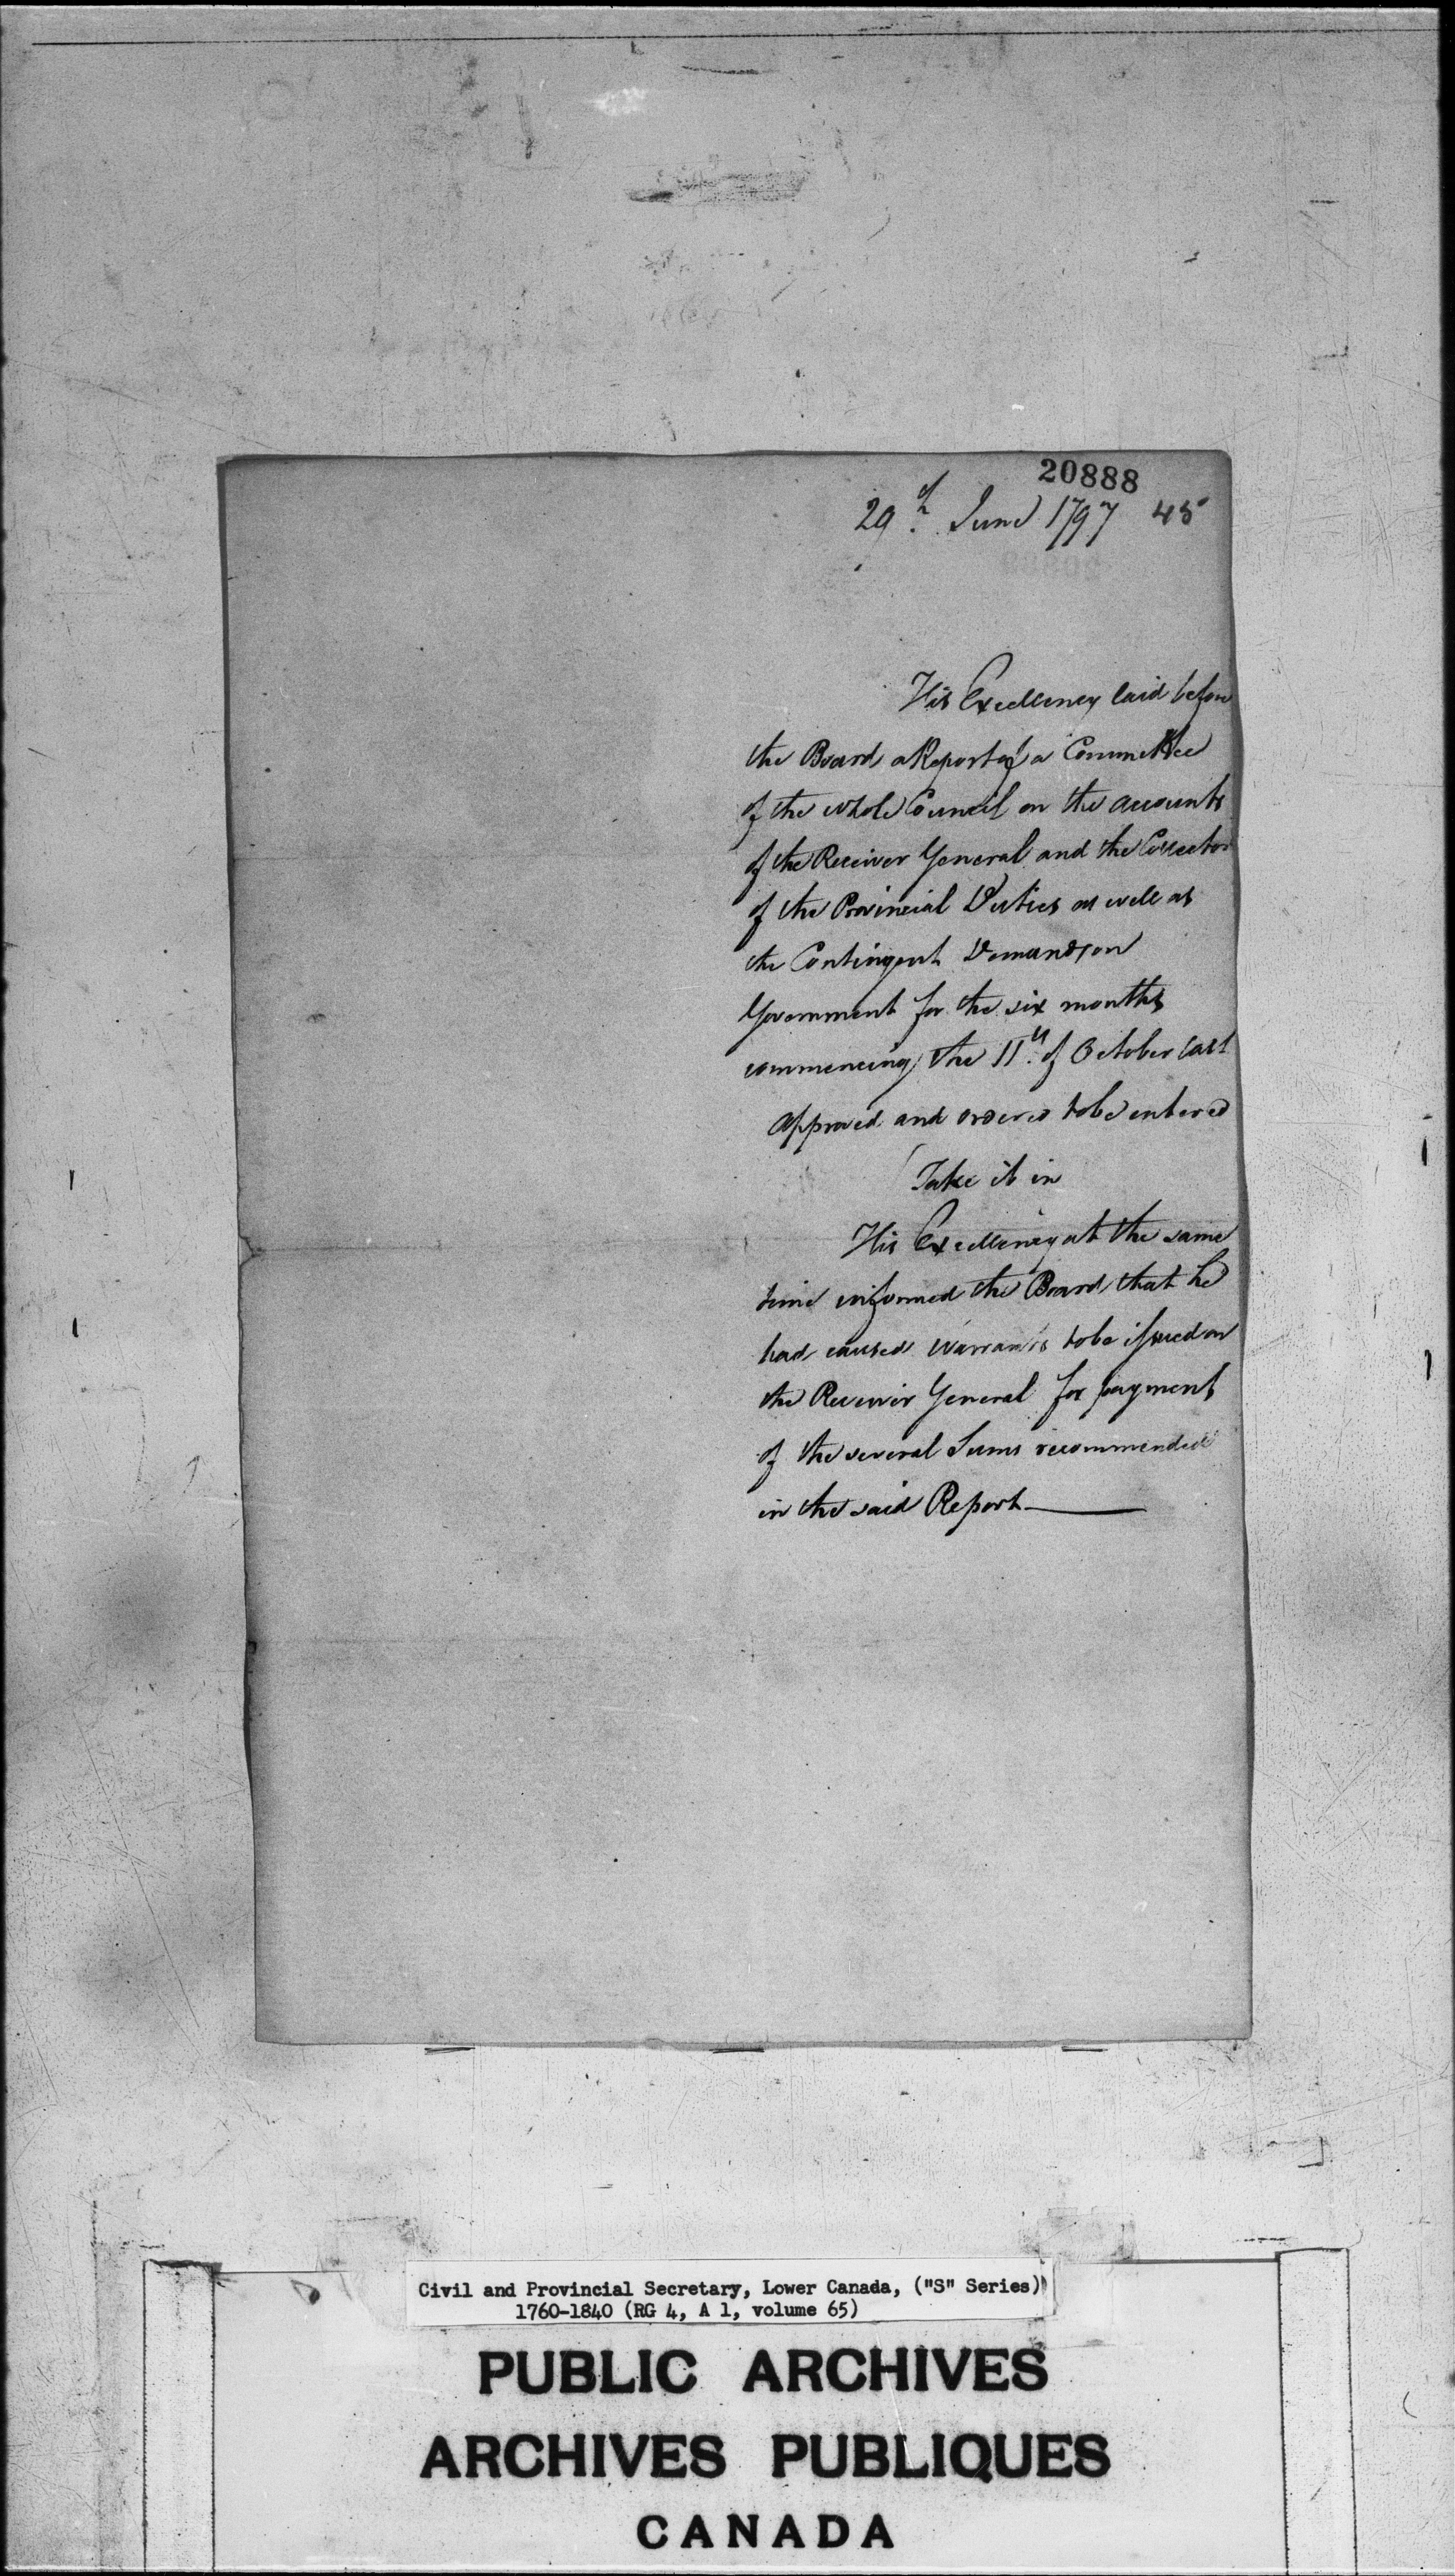 20888
29th. June 1797 45
His Excellency laid before
the Board a Report of a Committee
of the whole Council on the accounts
of the Receiver General and the Collector
of the Provincial Duties as well as
the Contingent Demands on
Government for the six months
commencing the 11th. of October last
approved and ordered to be entered
Take it in
His Excellency at the same
time informed the Board that he
had caused Warrants to be issued on
the Receiver General for payment
of the several Sums recommended
in the said Report
Civil and Provincial Secretary, Lower Canada, ("S" Series)
1760-1840 (RG 4, A 1, volume 65)
PUBLIC ARCHIVES
ARCHIVES PUBLIQUES
CANADA